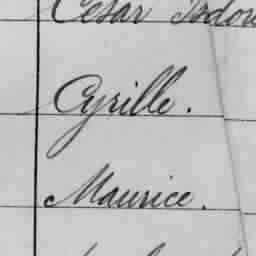 César Isdore
Cyrille.
Maurice.